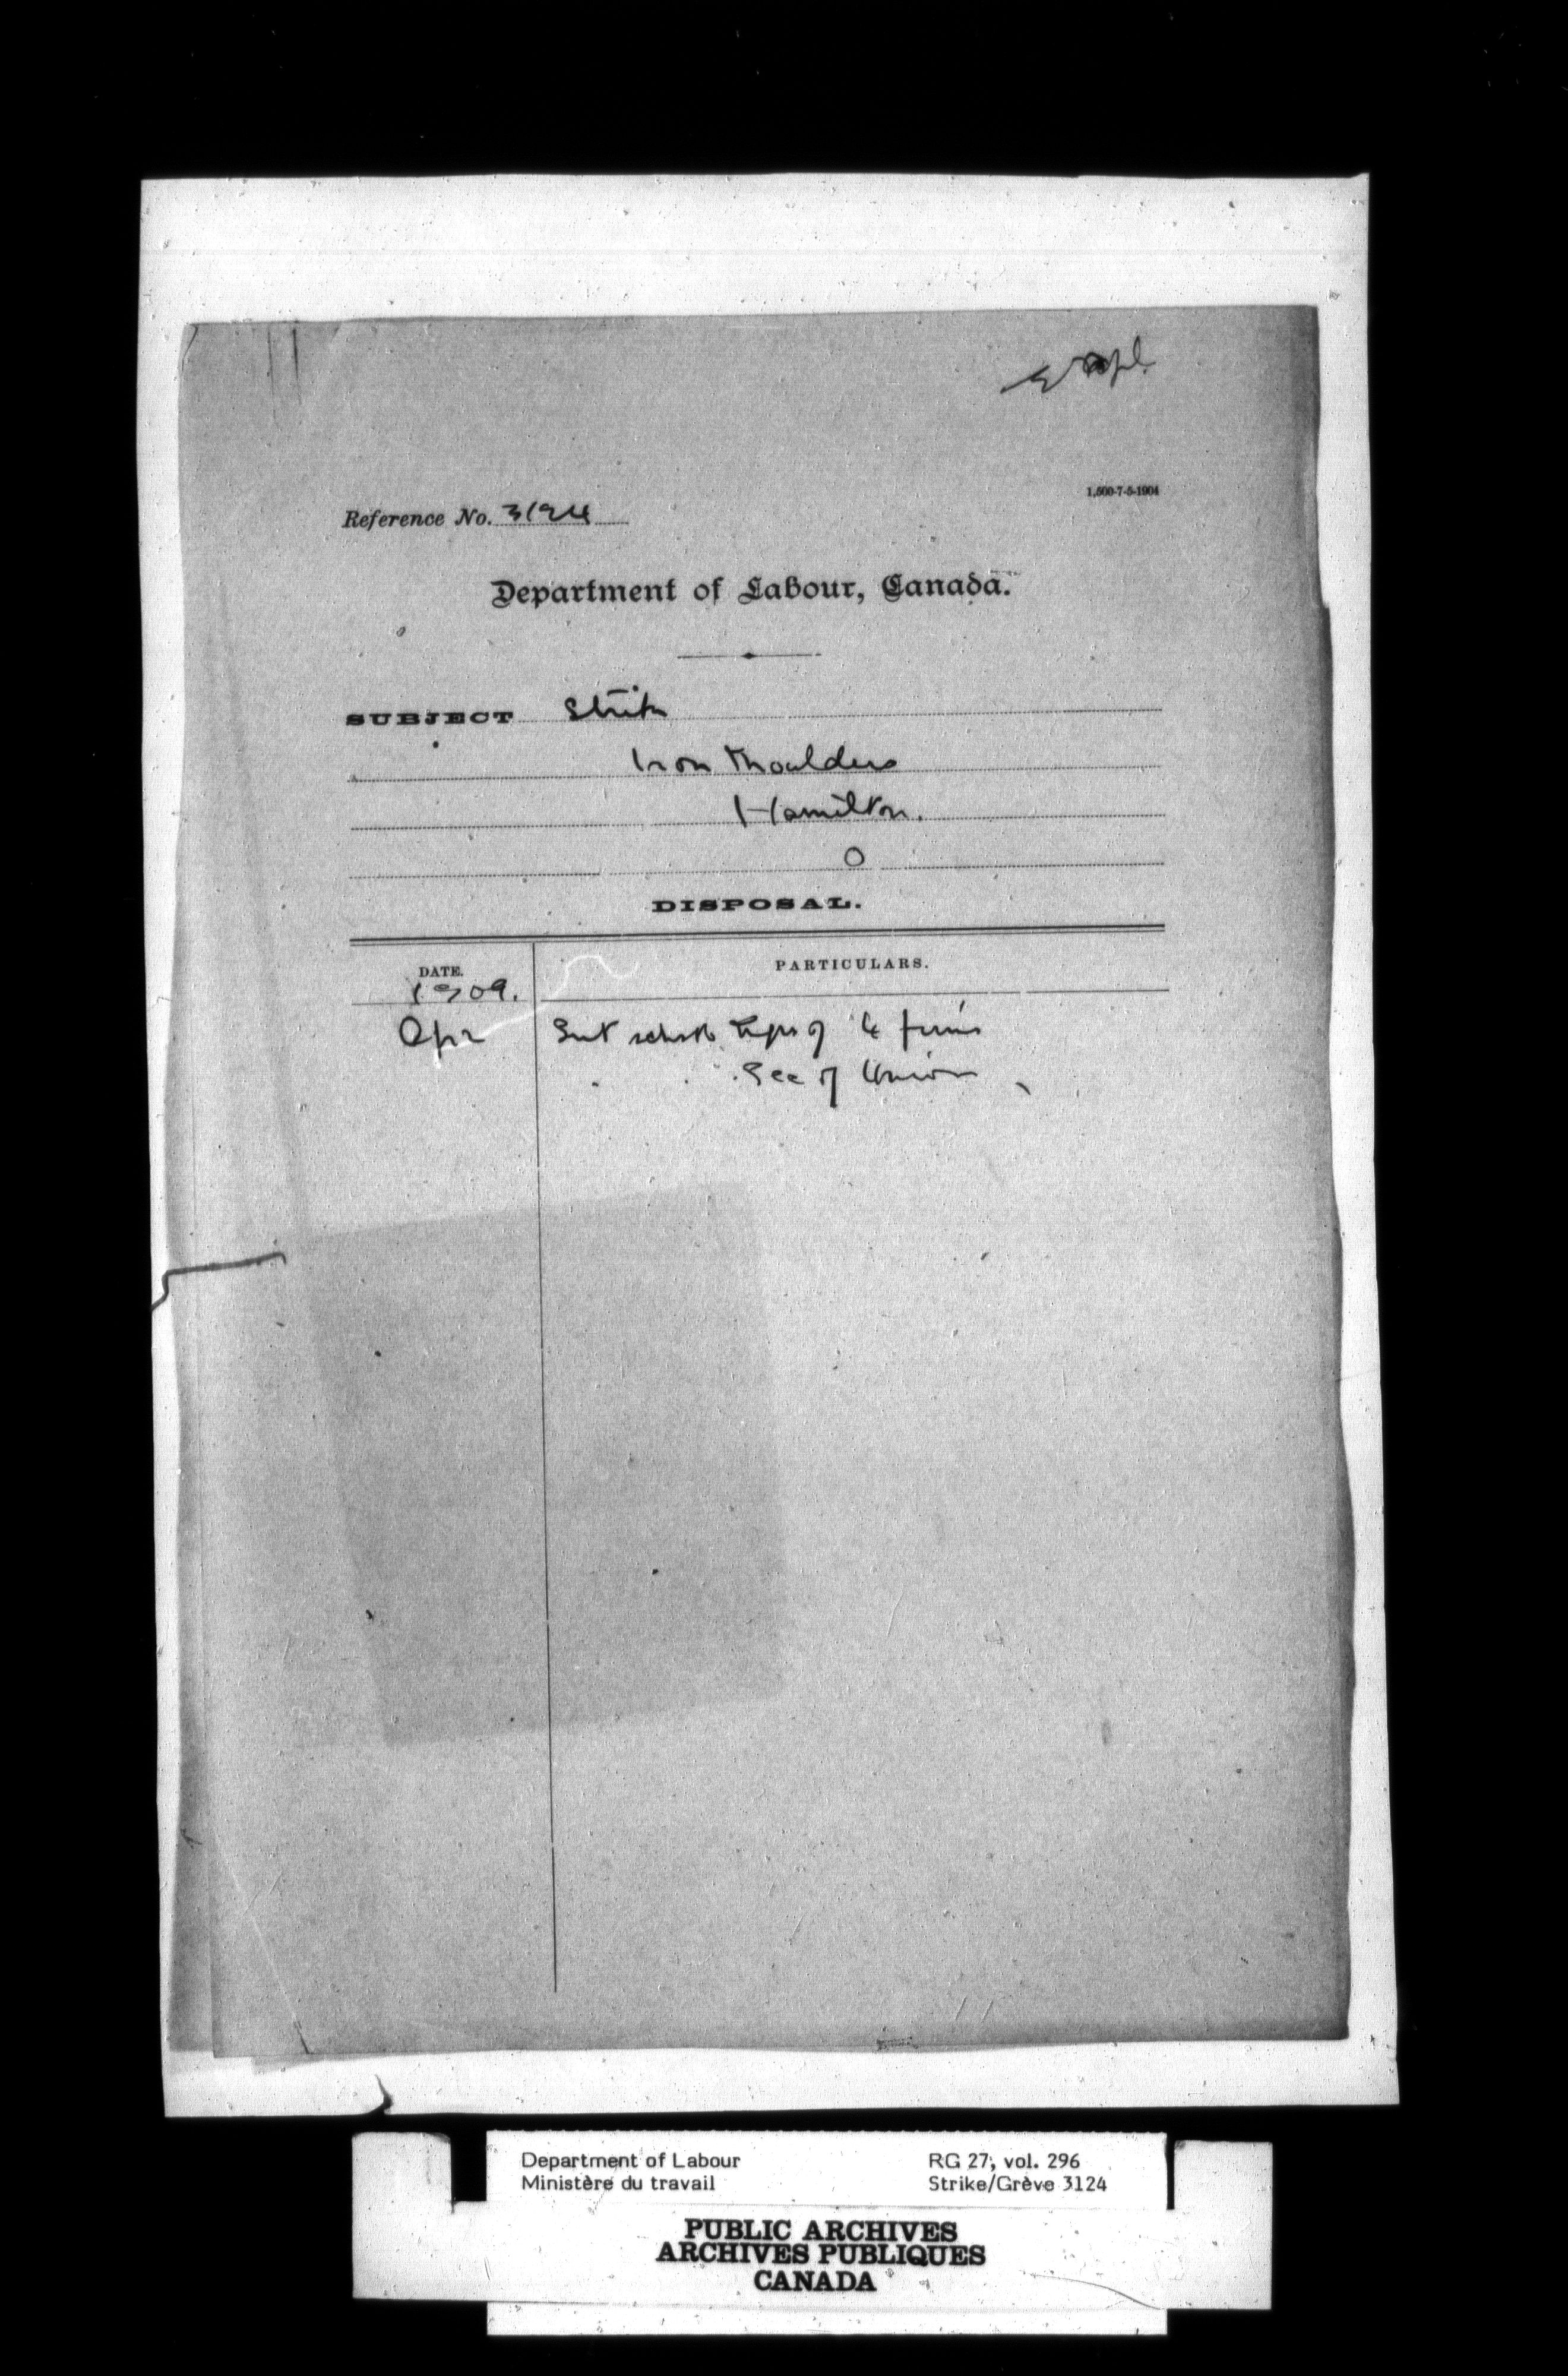 1,500-7-5-1904
Reference No. 3124
Department of Labour, Canada.
SUBJECT Strike
Iron Moulders
Hamilton.
O
DISPOSAL.
DATE. PARTICULARS.
1909.
Apr Sent scheds to mgrs of 4 firms
Sec of Union
Department of Labour RG 27, vol. 296
Ministère du travail Strike/Grève 3124
PUBLIC ARCHIVES
ARCHIVES PUBLIQUES
CANADA